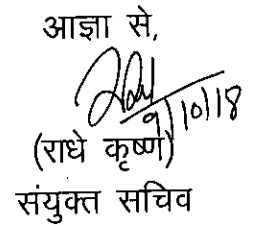 आज्ञा से,
9/10/18
(राधे कृष्ण)
संयुक्त सचिव